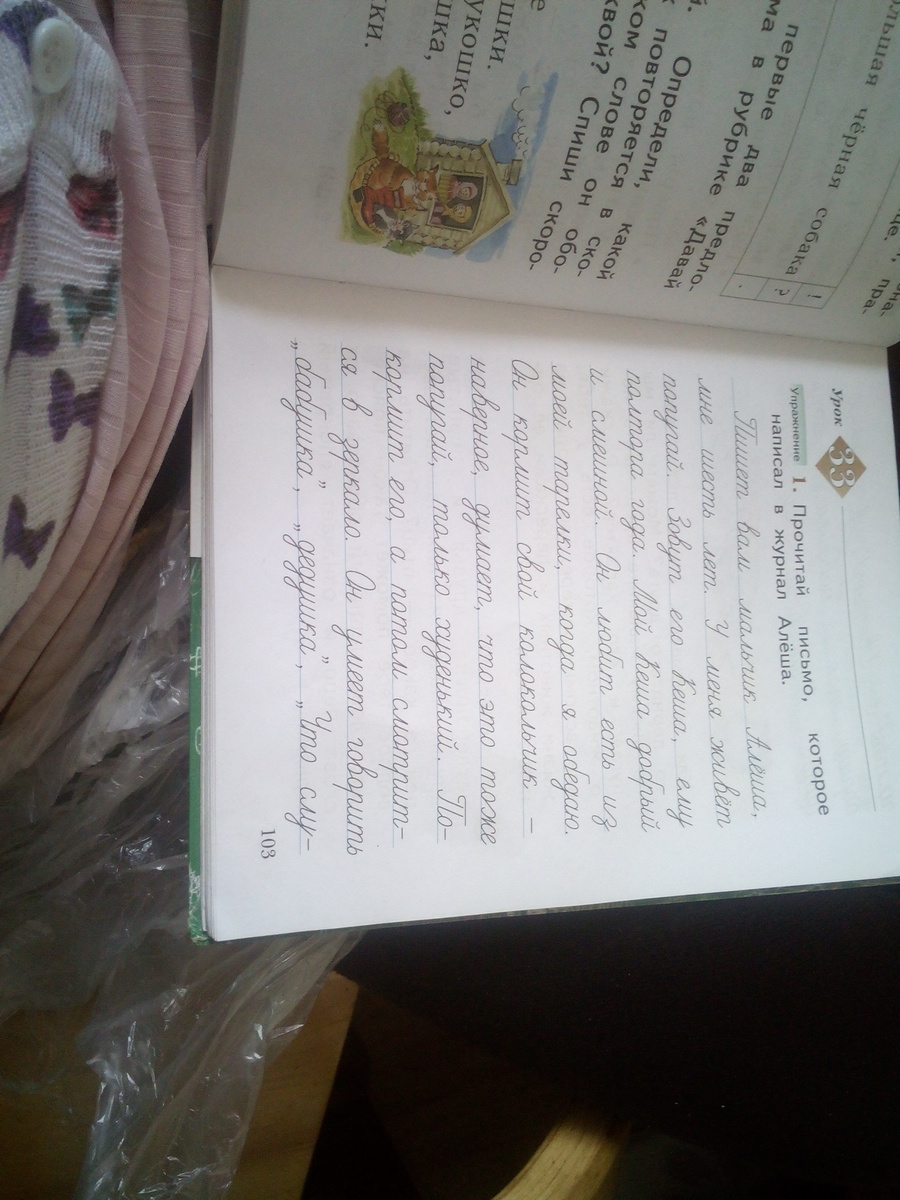 ольшая чёрная собака
!
?
.
первые два предло-
ма в рубрике «Давай
й. Определи, какой
повторяется в ско-
ком слове он обо-
квой? Спиши скоро-
шки.
укошко,
шка,
ки.
Урок 33
Упражнение 1. Прочитай письмо, которое
написал в журнал Алёша.
Пишет вам мальчик Алёша,
мне шесть лет. У меня живёт
попугай. Зовут его Кеша, ему
полтора года. Мой Кеша добрый
и смешной. Он любит есть из
моей тарелки, когда я обедаю.
Он кормит свой колокольчик –
наверное, думает, что это тоже
попугай, только худенький. По-
кормит его, а потом смотрит-
ся в зеркало. Он умеет говорить
„бабушка“, „дедушка“, „Что слу-
103